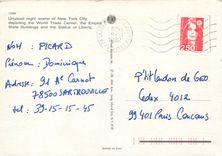 Unusual night scene of New York City,
depicting the World Trade Center, the Empire
State Buildings and the Statue of Liberty.
NOM : PICARD
Prénom : Dominique
Adresse : 91 Ae Carnot
78500 SARTROUVILLE
tel : 39-15-15-45
2,50
Cedex 4012
99401 Paris Concours